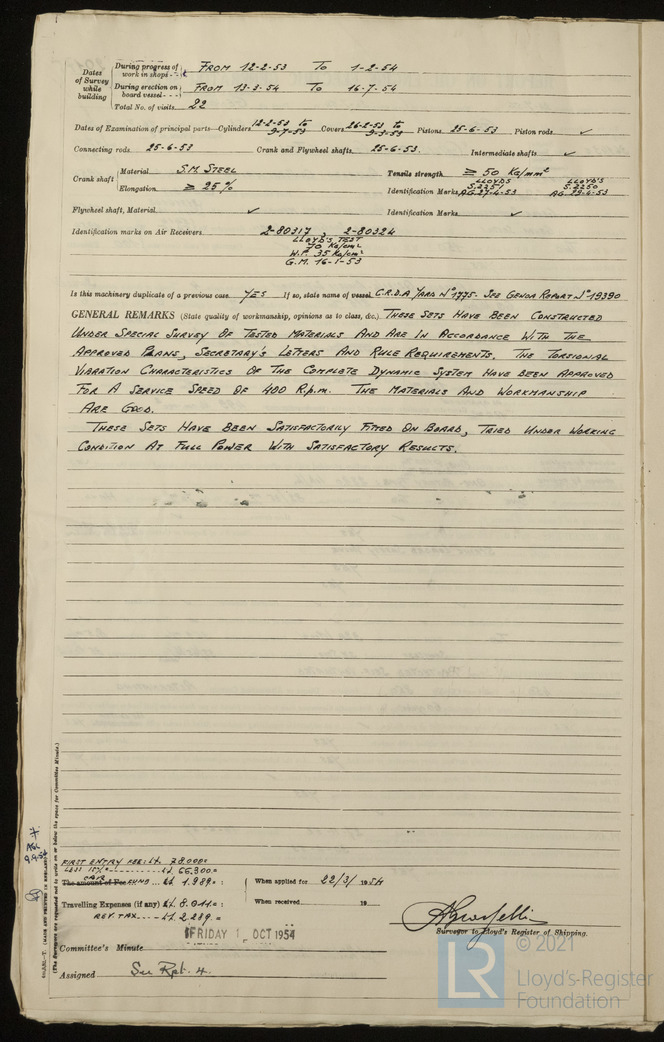 Dates of Survey while building
During progress of work in shops - - FROM 12-2-53 TO 1-2-54
During erection on board vessel - - - FROM 13-3-54 TO 16-7-54
Total No. of visits 22
Dates of Examination of principal parts—Cylinders 12-2-53 to 9-7-53 Covers 26-2-53 to 9-3-53 Pistons 25-6-53 Piston rods ✓
Connecting rods 25-6-53 Crank and Flywheel shafts 25-6-53 Intermediate shafts ✓
Crank shaft Material S.M. STEEL Tensile strength ≥ 50 Kg/mm²
Elongation ≥ 25 % Identification Marks LLOYD'S S.2251 AG 27-4-53 LLOYD'S S.2250 AG 29-4-53
Flywheel shaft, Material ✓ Identification Marks ✓
Identification marks on Air Receivers 2-80317, 2-80324
LLOYD'S TEST
70 Kg/cm²
W.P. 35 Kg/cm²
G.M. 16-1-53
Is this machinery duplicate of a previous case YES If so, state name of vessel C.R.D.A YARD Nº1775- SEE GENOA REPORT Nº19390
GENERAL REMARKS (State quality of workmanship, opinions as to class, &c.) THESE SETS HAVE BEEN CONSTRUCTED
UNDER SPECIAL SURVEY OF TESTED MATERIALS AND ARE IN ACCORDANCE WITH THE
APPROVED PLANS, SECRETARY'S LETTERS AND RULE REQUIREMENTS. THE TORSIONAL
VIBRATION CHARACTERISTICS OF THE COMPLETE DYNAMIC SYSTEM HAVE BEEN APPROVED
FOR A SERVICE SPEED OF 400 R.p.m. THE MATERIALS AND WORKMANSHIP
ARE GOOD.
THESE SETS HAVE BEEN SATISFACTORILY FITTED ON BOARD, TRIED UNDER WORKING
CONDITION AT FULL POWER WITH SATISFACTORY RESULTS.
(The Surveyors are requested not to write on or below the space for Committee's Minute.)
FIRST ENTRY FEE: Lt. 78.000=
LESS 15% Lt 66.300=
The amount of Fee FUND ... Lt 1.989= : When applied for 22/3/ 1954
Travelling Expenses (if any) Lt. 8.011= : When received 19
REV. TAX Lt. 2.289=
Surveyor to Lloyd's Register of Shipping.
FRIDAY 1 OCT 1954
Committee's Minute
Assigned See Rpt. 4.
LR © 2021
Lloyd's Register
Foundation